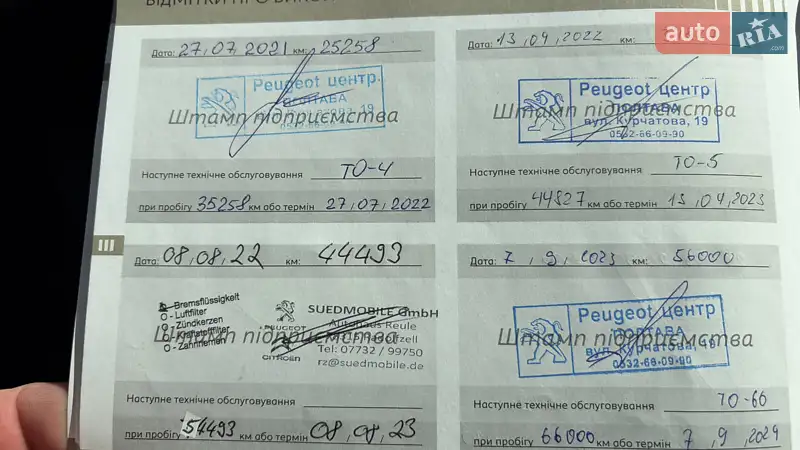 Дата: 27,07 2021 км: 25258
Peugeot центр
ПОЛТАВА
Штамп підприємства
Наступне технічне обслуговування ТО-4
при пробігу 35258 км або термін 27,07,2022
Дата: 13,04,2022 км:
auto RIA.com
Peugeot центр
ПОЛТАВА
Штамп підприємства
вул. Курчатова, 19
0532-66-09-90
Наступне технічне обслуговування ТО-5
при пробігу 44827 км або термін 13,04,2023
III
Дата: 08,08,22 км: 44493
Bremsflüssigkeit
O - Luftfilter
O - Zündkerzen
O - Kraftstoffilter
O - Zahnriemen
Штамп підприємства
PEUGEOT
CITROËN
SUEDMOBILE GmbH
Autohaus Reule
Tel: 07732 / 99750
rz@suedmobile.de
Наступне технічне обслуговування
при пробігу 54493 км або термін 08,08,23
Дата: 7, 9, 2023 км: 56000
Peugeot центр
ПОЛТАВА
Штамп підприємства
вул. Курчатова, 19
0532-66-09-90
Наступне технічне обслуговування ТО-66
при пробігу 66000 км або термін 7, 9, 2024